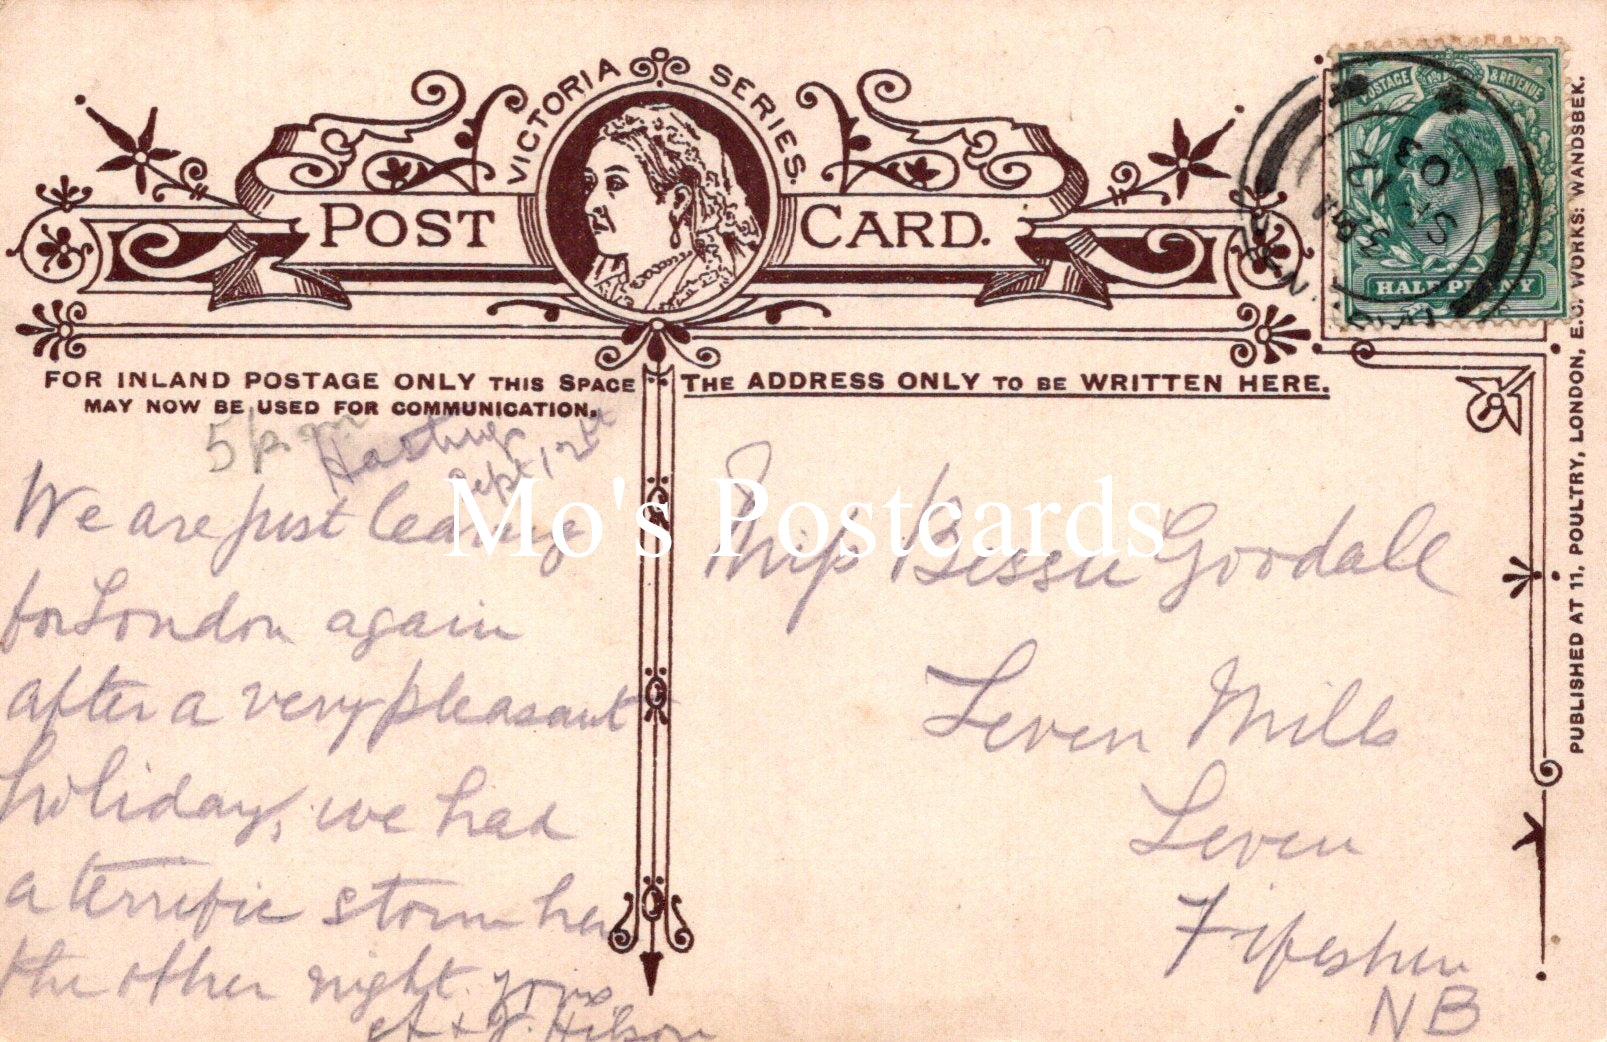 VICTORIA SERIES.
POST CARD.
POSTAGE & REVENUE
HALFPENNY
SP 12
03
FOR INLAND POSTAGE ONLY THIS SPACE
MAY NOW BE USED FOR COMMUNICATION.
THE ADDRESS ONLY TO BE WRITTEN HERE.
Hastings
Sept 12th
We are just leaving
for London again
after a very pleasant
holiday, we had
a terrific storm here
the other night. Yours
A & J. Hilson
Miss Bessie Goodall
Leven Mills
Leven
Fifeshire
NB
PUBLISHED AT 11, POULTRY, LONDON, E.C. WORKS: WANDSBEK.
Mo's Postcards